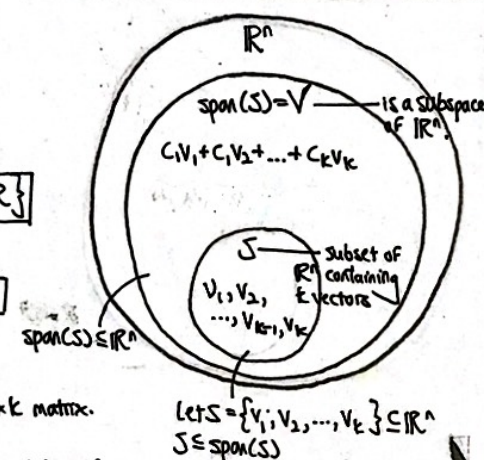 ℝⁿ
span(S)=V
is a subspace
of ℝⁿ.
C₁V₁+C₁V₂+...+CₖVₖ
S
subset of
ℝⁿ containing
k vectors
V₁,V₂,
...,Vₖ₋₁,Vₖ
span(S)⊆ℝⁿ
k matrix.
Let S={V₁,V₂,...,Vₖ}⊆ℝⁿ
S⊆span(S)